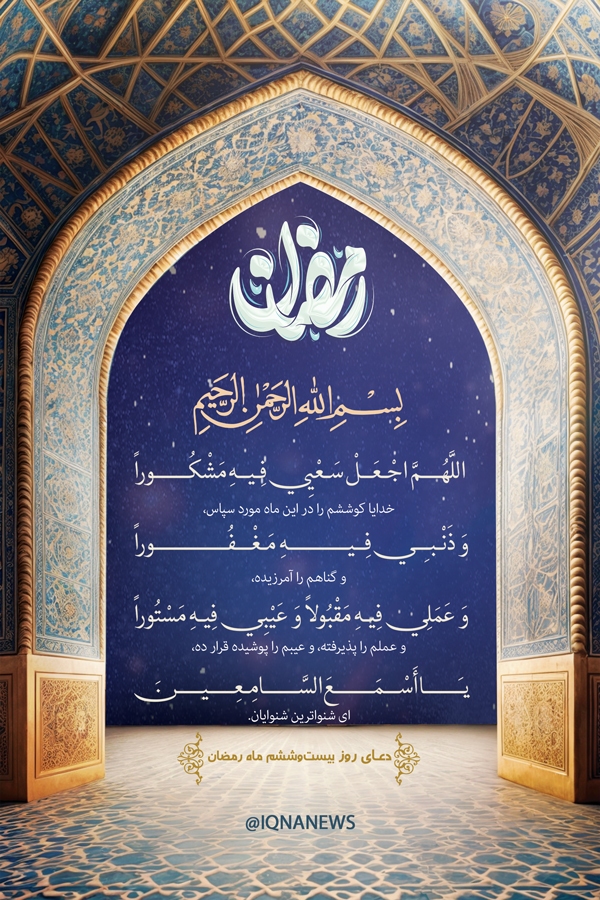 رمضان
بِسْمِ اللهِ الرَّحْمٰنِ الرَّحِيمِ
اللَّهُمَّ اجْعَلْ سَعْيِي فِيهِ مَشْكُوراً
خدایا کوششم را در این ماه مورد سپاس،
وَ ذَنْبِي فِيهِ مَغْفُوراً
و گناهم را آمرزیده،
وَ عَمَلِي فِيهِ مَقْبُولاً وَ عَيْبِي فِيهِ مَسْتُوراً
و عملم را پذیرفته، و عیبم را پوشیده قرار ده،
يَا أَسْمَعَ السَّامِعِينَ
ای شنواترین شنوایان.
دعای روز بیست‌وششم ماه رمضان
@IQNANEWS